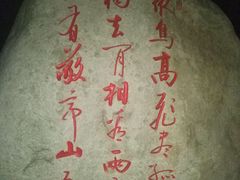 众鸟高飞尽孤
独去闲相看两
有敬亭山